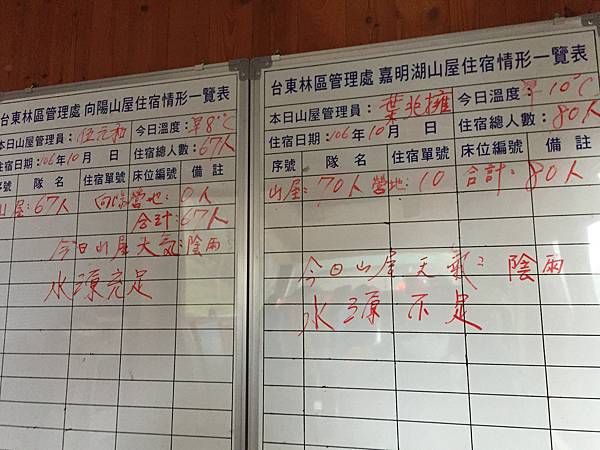 台東林區管理處 向陽山屋住宿情形一覽表
本日山屋管理員：伍元和 今日溫度：早8℃
住宿日期：106年10月 日 住宿總人數：67人
序號 隊名 住宿單號 床位編號 備註
山屋：67人 向陽營地：0人
合計：67人
今日山屋天氣：陰雨
水源充足
台東林區管理處 嘉明湖山屋住宿情形一覽表
本日山屋管理員：葉兆擁 今日溫度：早10℃
住宿日期：106年10月 日 住宿總人數：80人
序號 隊名 住宿單號 床位編號 備註
山屋：70人 營地：10 合計：80人
今日山屋天氣：陰雨
水源不足